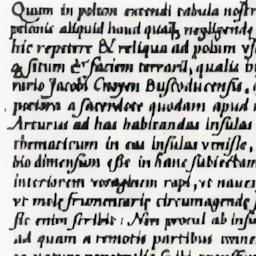 Quum in polum extendi tabula nostr
petonis aliquid haud quaq negligendę
hic repetere & reliqua ad polum vs
& situm & faciem terrarũ, qualis h
rario Jacobi Cnoyen Buscoducensis, q
posteros a sacerdote quodam apud r
Arturus ad has habitandas insulas
thematicum in eas insulas venisse,
bio dimensum esse in hanc subiectam
interiorem voraginem rapi, ut naues
ut molę frumentarię circumagendę s
sic enim scribit: Non procul ab insu
ad quam a remotis partibus conue